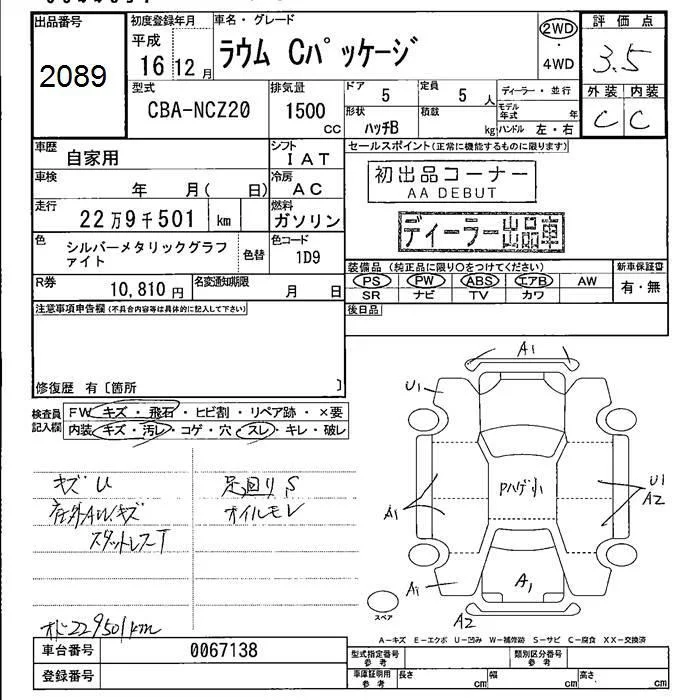 出品番号
2089
初度登録年月
平成
16 12 月
車名・グレード
ラウム Cパッケージ
2WD
・
4WD
評価点
3.5
外装 内装
C C
型式
CBA-NCZ20
排気量
1500
CC
ドア
5
定員
5 人
形状
ハッチB
積載
kg
ディーラー・並行
モデル年式 年
ハンドル 左・右
車歴
自家用
シフト
IAT
セールスポイント(正常に機能するものに限ります)
初出品コーナー
AA DEBUT
ディーラー出品車
車検
年 月( 日)
冷房
AC
走行
22万9千501 km
燃料
ガソリン
色
シルバーメタリックグラファイト
色替
色コード
1D9
装備品 (純正品に限り○をつけてください)
PS PW ABS エアB AW
SR ナビ TV カワ
新車保証書
有・無
R券
10,810 円
名変通知期限
月 日
後日品
注意事項申告欄(不具合内容等は具体的に記入して下さい)
修復歴 有〔箇所 〕
検査員
記入欄
FW キズ・飛石・ヒビ割・リペア跡・×要
内装 キズ・汚レ・コゲ・穴・スレ・キレ・破レ
キズ U
足廻りS
オイルモレ
スタットレスT
229501km
A1
U1
A1
Pハゲ小
U1
A2
A1
A1
A2
スペア
A-キズ E-エクボ U-凹み W-補修跡 S-サビ C-腐食 XX-交換済
車台番号
0067138
登録番号
型式指定番号
参考
類別区分番号
参考
車庫証明用
参考
長さ cm
幅 cm
高さ cm